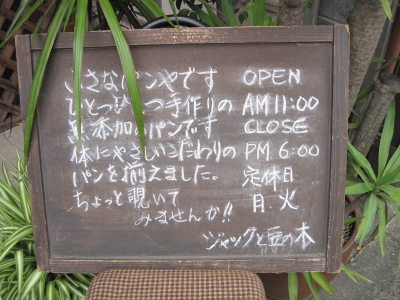 小さなパンやです OPEN
ひとつひとつ手作りの AM 11:00
無添加のパンです CLOSE
体にやさしいこだわりの PM 6:00
パンを揃えました。 定休日
ちょっと覗いて 月.火
みませんか!!
ジャックと豆の木